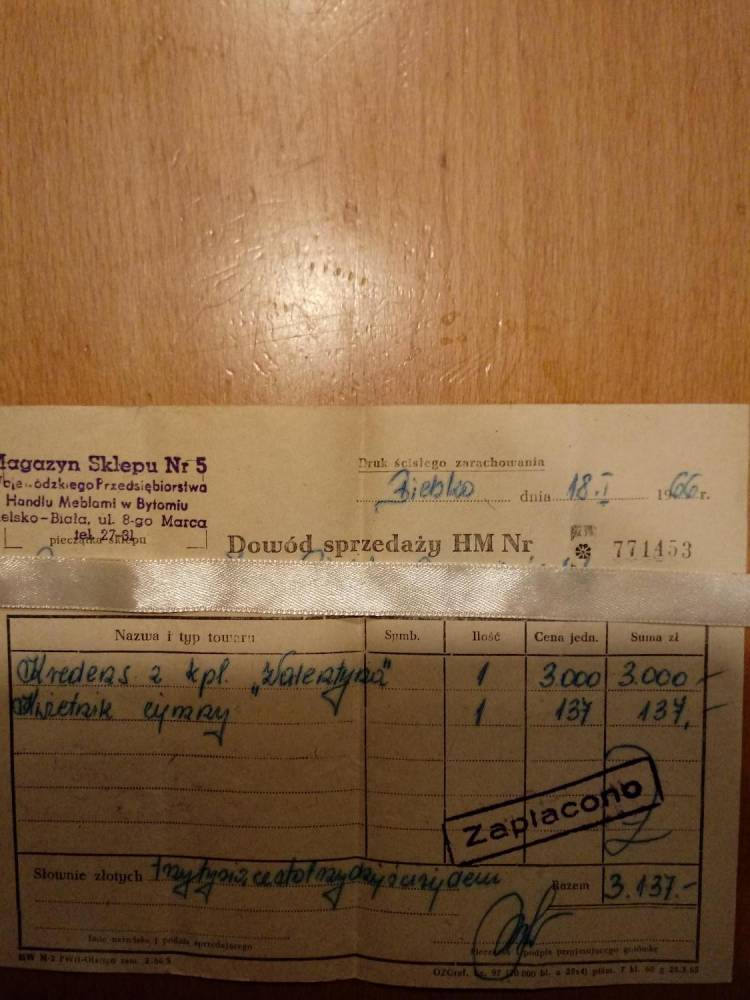 Magazyn Sklepu Nr 5
Wojewódzkiego Przedsiębiorstwa
Handlu Meblami w Bytomiu
elsko-Biała, ul. 8-go Marca
tel. 27-81
pieczątka sklepu
Druk ścisłego zarachowania
Bielsko dnia 18.I 1966 r.
Dowód sprzedaży HM Nr 771453
Nazwa i typ towaru Symb. Ilość Cena jedn. Suma zł
Kredens z kpl. „Walentyna" 1 3.000 3.000.-
Kwietnik 1 137 137,-
Zapłacono
Słownie złotych trzytysiącestotrzydzieścisiedem Razem 3.137.-
Imię nazwisko i podpis sprzedającego
Pieczątka i podpis przyjmującego gotówkę